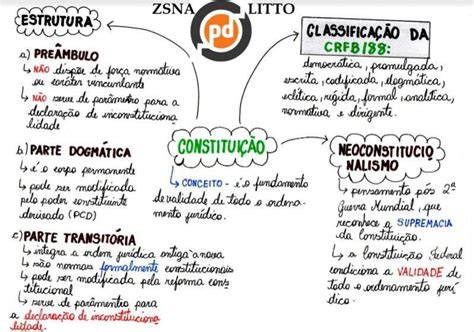 ZSNA LITTO
pd
ESTRUTURA
a) PREÂMBULO
↳ NÃO dispõe de força normativa
ou caráter vinculante
↳ NÃO serve de parâmetro para a
declaração de inconstituciona
lidade
b) PARTE DOGMÁTICA
↳ é o corpo permanente
↳ pode ser modificada
pelo poder constituinte
derivado (PCD)
c) PARTE TRANSITÓRIA
↳ integra a ordem jurídica antiga à nova
↳ são normas formalmente constitucionais
↳ pode ser modificada pela reforma cons
titucional
↳ serve de parâmentro para
a declaração de inconstituciona
lidade.
CONSTITUIÇÃO
↳ CONCEITO - é o fundamento
de validade de todo o ordena-
mento jurídico.
CLASSIFICAÇÃO DA
CRFB/88:
democrática, promulgada,
escrita, codificada, dogmática,
eclética, rígida, formal, analítica,
normativa e dirigente.
NEOCONSTITUCIO
NALISMO
↳ pensamento pós 2ª
Guerra Mundial, que
reconhece a SUPREMACIA
da Constituição.
↳ a Constituição Federal
condiciona a VALIDADE de
todo o ordenamento jurí
dico.